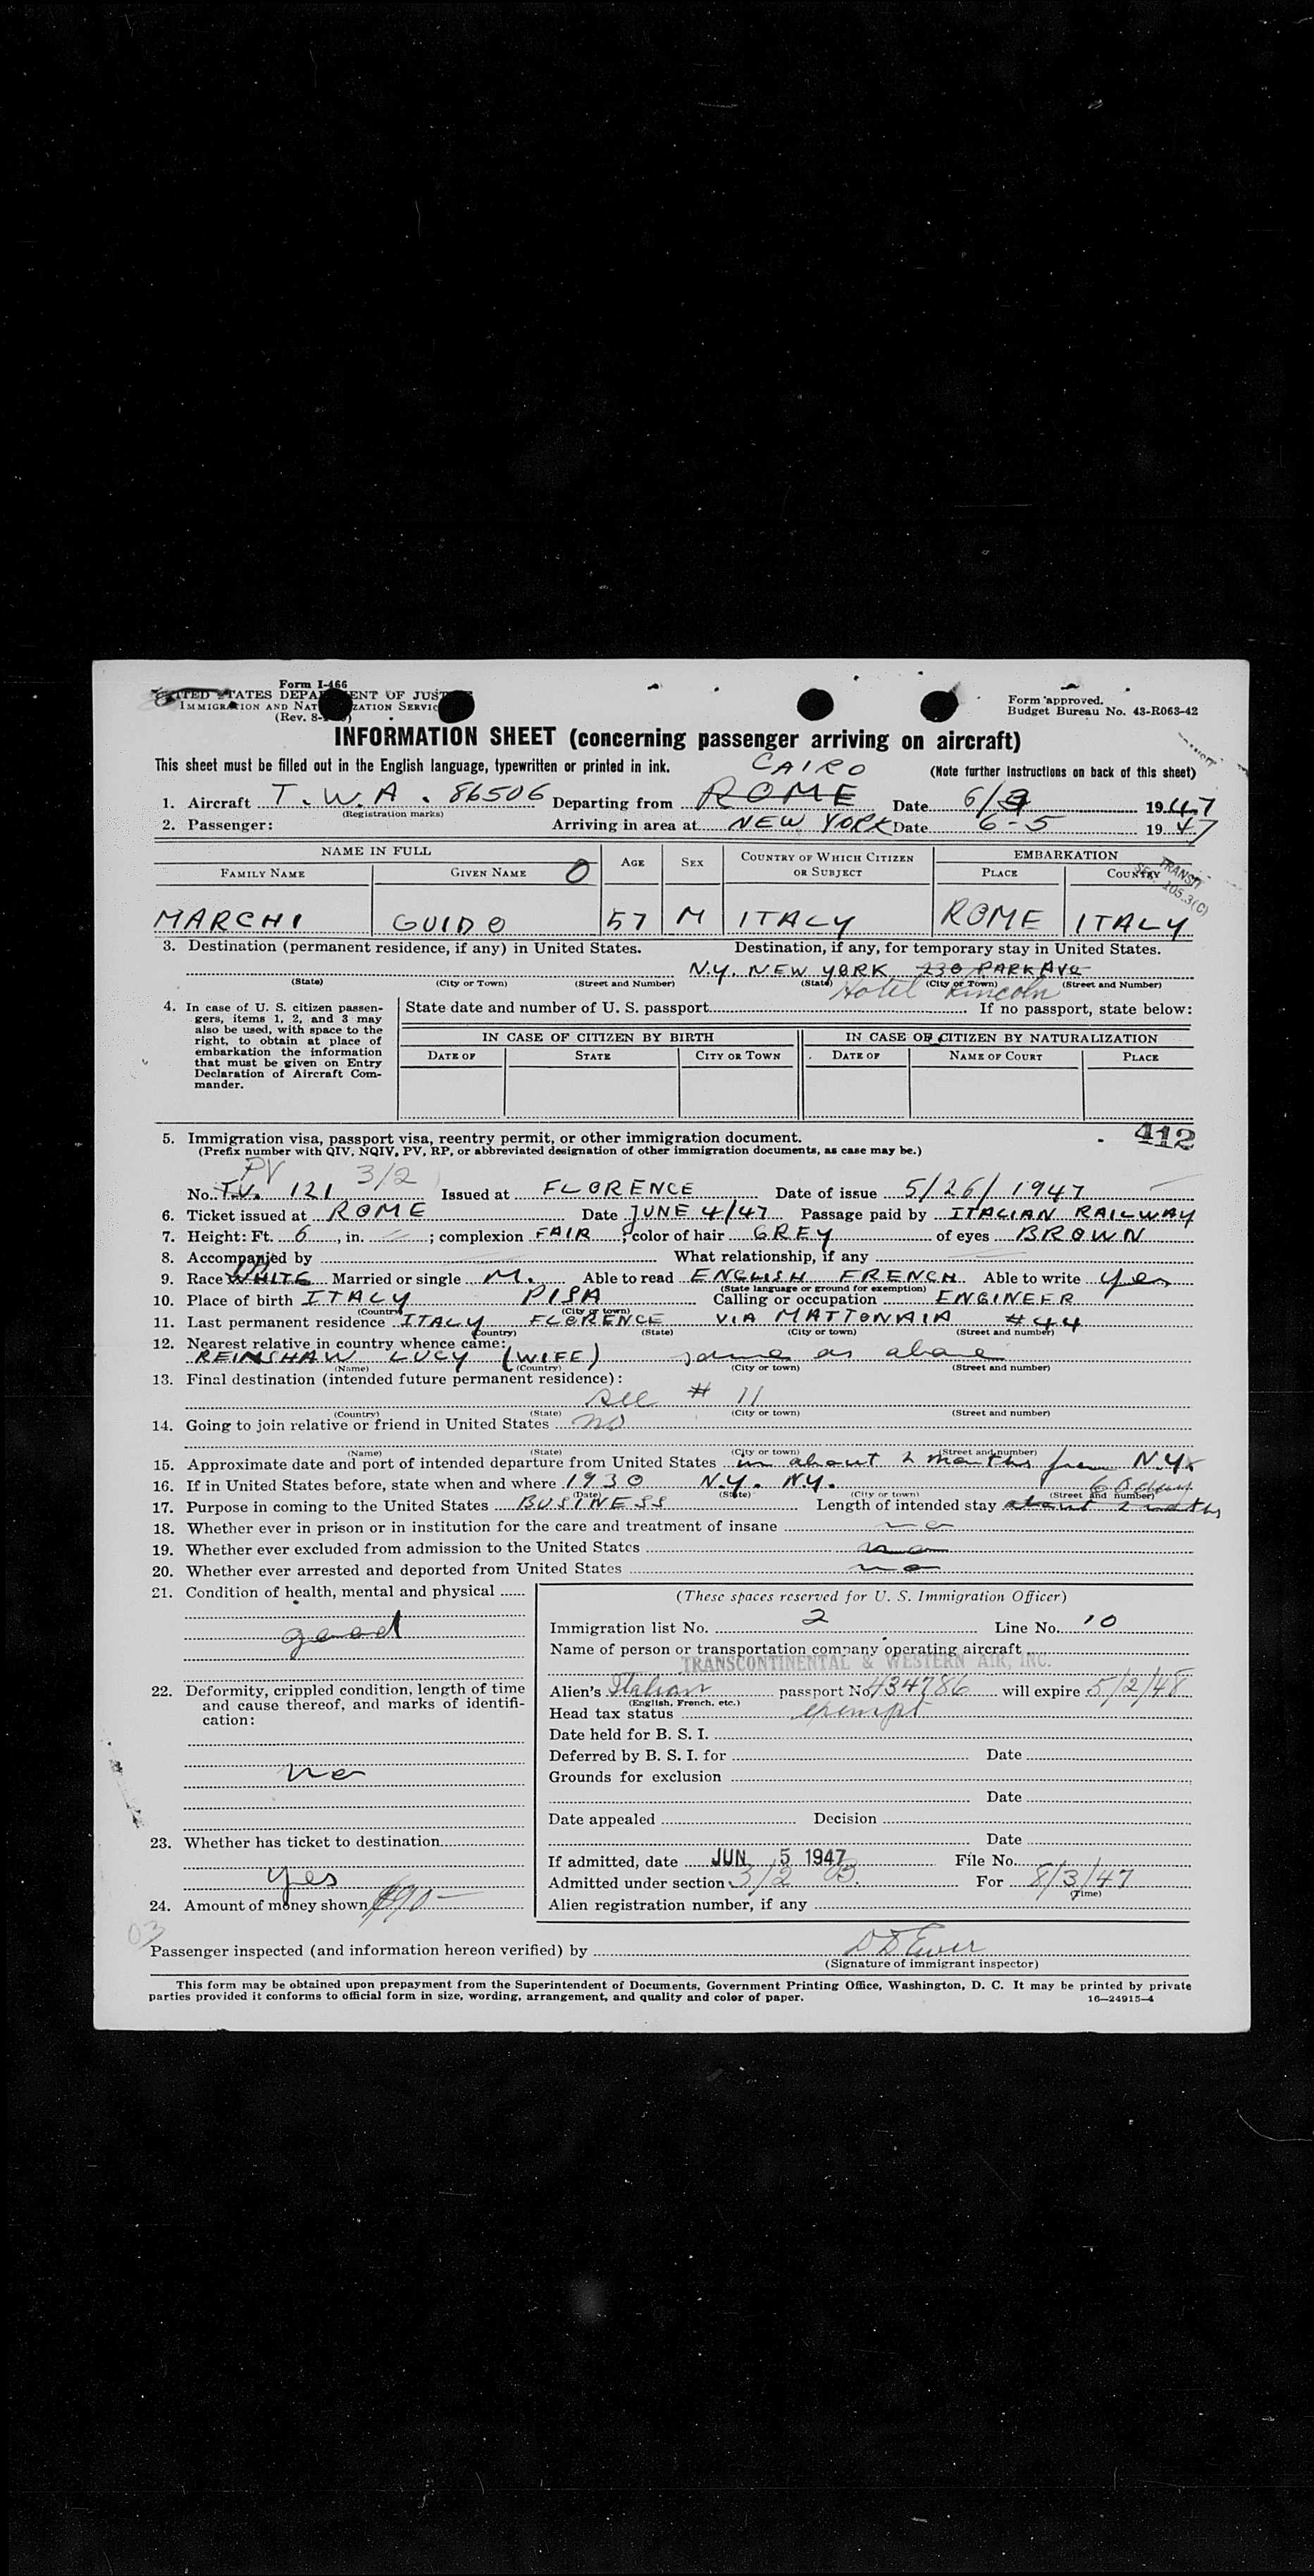 Form I-466
UNITED STATES DEPARTMENT OF JUSTICE
IMMIGRATION AND NATURALIZATION SERVICE
(Rev. 8-
Form approved.
Budget Bureau No. 43-R063-42
INFORMATION SHEET (concerning passenger arriving on aircraft)
This sheet must be filled out in the English language, typewritten or printed in ink.
(Note further instructions on back of this sheet)
CAIRO
1. Aircraft T.W.A. 86506 Departing from ROME Date 6/ 1947
(Registration marks)
2. Passenger: Arriving in area at NEW YORK Date 6-5 1947
NAME IN FULL AGE SEX COUNTRY OF WHICH CITIZEN OR SUBJECT EMBARKATION
FAMILY NAME GIVEN NAME O PLACE COUNTRY
TRANSIT
SEC. 105.3(C)
MARCHI GUIDO 57 M ITALY ROME ITALY
3. Destination (permanent residence, if any) in United States. Destination, if any, for temporary stay in United States.
N.Y. NEW YORK 230 PARK AVE
(State) (City or Town) (Street and Number) (State) (City or Town) (Street and Number)
Hotel Lincoln
4. In case of U. S. citizen passengers, items 1, 2, and 3 may also be used, with space to the right, to obtain at place of embarkation the information that must be given on Entry Declaration of Aircraft Commander.
State date and number of U. S. passport If no passport, state below:
IN CASE OF CITIZEN BY BIRTH IN CASE OF CITIZEN BY NATURALIZATION
DATE OF STATE CITY OR TOWN DATE OF NAME OF COURT PLACE
412
5. Immigration visa, passport visa, reentry permit, or other immigration document.
(Prefix number with QIV, NQIV, PV, RP, or abbreviated designation of other immigration documents, as case may be.)
PV 3/2
No. T.V. 121 Issued at FLORENCE Date of issue 5/26/1947
6. Ticket issued at ROME Date JUNE 4/47 Passage paid by ITALIAN RAILWAY
7. Height: Ft. 6, in. ; complexion FAIR; color of hair GREY of eyes BROWN
8. Accompanied by What relationship, if any
9. Race WHITE Married or single M. Able to read ENGLISH FRENCH Able to write yes
(State language or ground for exemption)
10. Place of birth ITALY PISA Calling or occupation ENGINEER
(Country) (City or town)
11. Last permanent residence ITALY FLORENCE VIA MATTONAIA #44
(Country) (State) (City or town) (Street and number)
12. Nearest relative in country whence came:
REINSHAW LUCY (WIFE) same as above
(Name) (Country) (City or town) (Street and number)
13. Final destination (intended future permanent residence):
see # 11
(Country) (State) (City or town) (Street and number)
14. Going to join relative or friend in United States no
(Name) (State) (City or town) (Street and number)
15. Approximate date and port of intended departure from United States in about 2 months from N.Y.
16. If in United States before, state when and where 1930 N.Y. N.Y.
(Date) (State) (City or town) (Street and number)
60 days
17. Purpose in coming to the United States BUSINESS Length of intended stay about 2 months
18. Whether ever in prison or in institution for the care and treatment of insane no
19. Whether ever excluded from admission to the United States no
20. Whether ever arrested and deported from United States no
21. Condition of health, mental and physical
good
22. Deformity, crippled condition, length of time and cause thereof, and marks of identification:
no
23. Whether has ticket to destination
yes
24. Amount of money shown $90-
(These spaces reserved for U. S. Immigration Officer)
Immigration list No. 2 Line No. 10
Name of person or transportation company operating aircraft
TRANSCONTINENTAL & WESTERN AIR, INC.
Alien's Italian passport No. 434786 will expire 5/2/48
(English, French, etc.)
Head tax status exempt
Date held for B. S. I.
Deferred by B. S. I. for Date
Grounds for exclusion
Date
Date appealed Decision
Date
If admitted, date JUN 5 1947 File No.
Admitted under section 3/2 B. For 8/3/47
(Time)
Alien registration number, if any
03
Passenger inspected (and information hereon verified) by
(Signature of immigrant inspector)
This form may be obtained upon prepayment from the Superintendent of Documents, Government Printing Office, Washington, D. C. It may be printed by private
parties provided it conforms to official form in size, wording, arrangement, and quality and color of paper.
16—24915-4